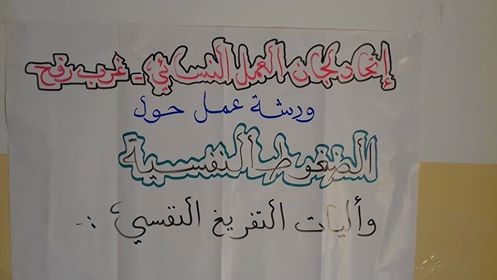 إتحاد لجان العمل النسائي - غرب رفح -
ورشة عمل حول
الضغوط النفسية
وأليات التفريغ النفسي :-